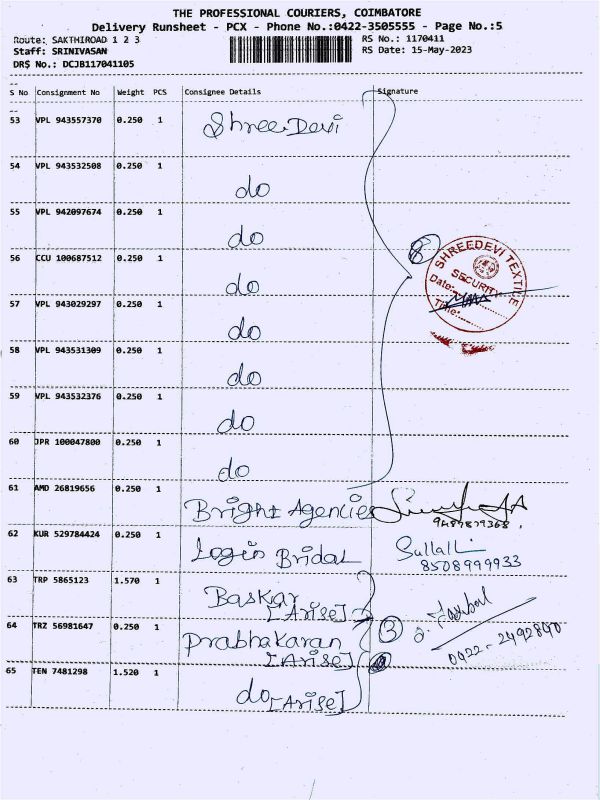 THE PROFESSIONAL COURIERS, COIMBATORE
Delivery Runsheet - PCX - Phone No.:0422-3505555 - Page No.:5
Route: SAKTHIROAD 1 2 3 RS No.: 1170411
Staff: SRINIVASAN RS Date: 15-May-2023
DRS No.: DCJB117041105
S No Consignment No Weight PCS Consignee Details Signature
53 VPL 943557370 0.250 1 Shree Devi
54 VPL 943532508 0.250 1 do
55 VPL 942097674 0.250 1 do
56 CCU 100687512 0.250 1 do
8
SHREEDEVI TEXTILE
SECURITY
Date:
Time:
57 VPL 943029297 0.250 1 do
58 VPL 943531309 0.250 1 do
59 VPL 943532376 0.250 1 do
60 JPR 100047800 0.250 1 do
61 AMD 26819656 0.250 1 Bright Agencies
9487879368.
62 KUR 529784424 0.250 1 Login Bridal
8508999933
63 TRP 5865123 1.570 1 Baskar
[Arise]
64 TRZ 56981647 0.250 1 Prabhakaran 3
[Arise] 0422-2492840
65 TEN 7481298 1.520 1 do [Arise]